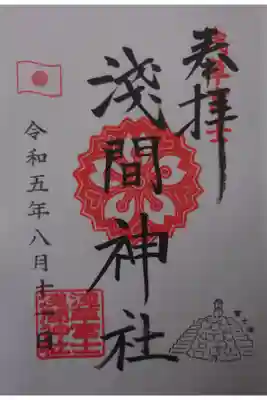 奉拝
淺間神社
令和五年八月十一日